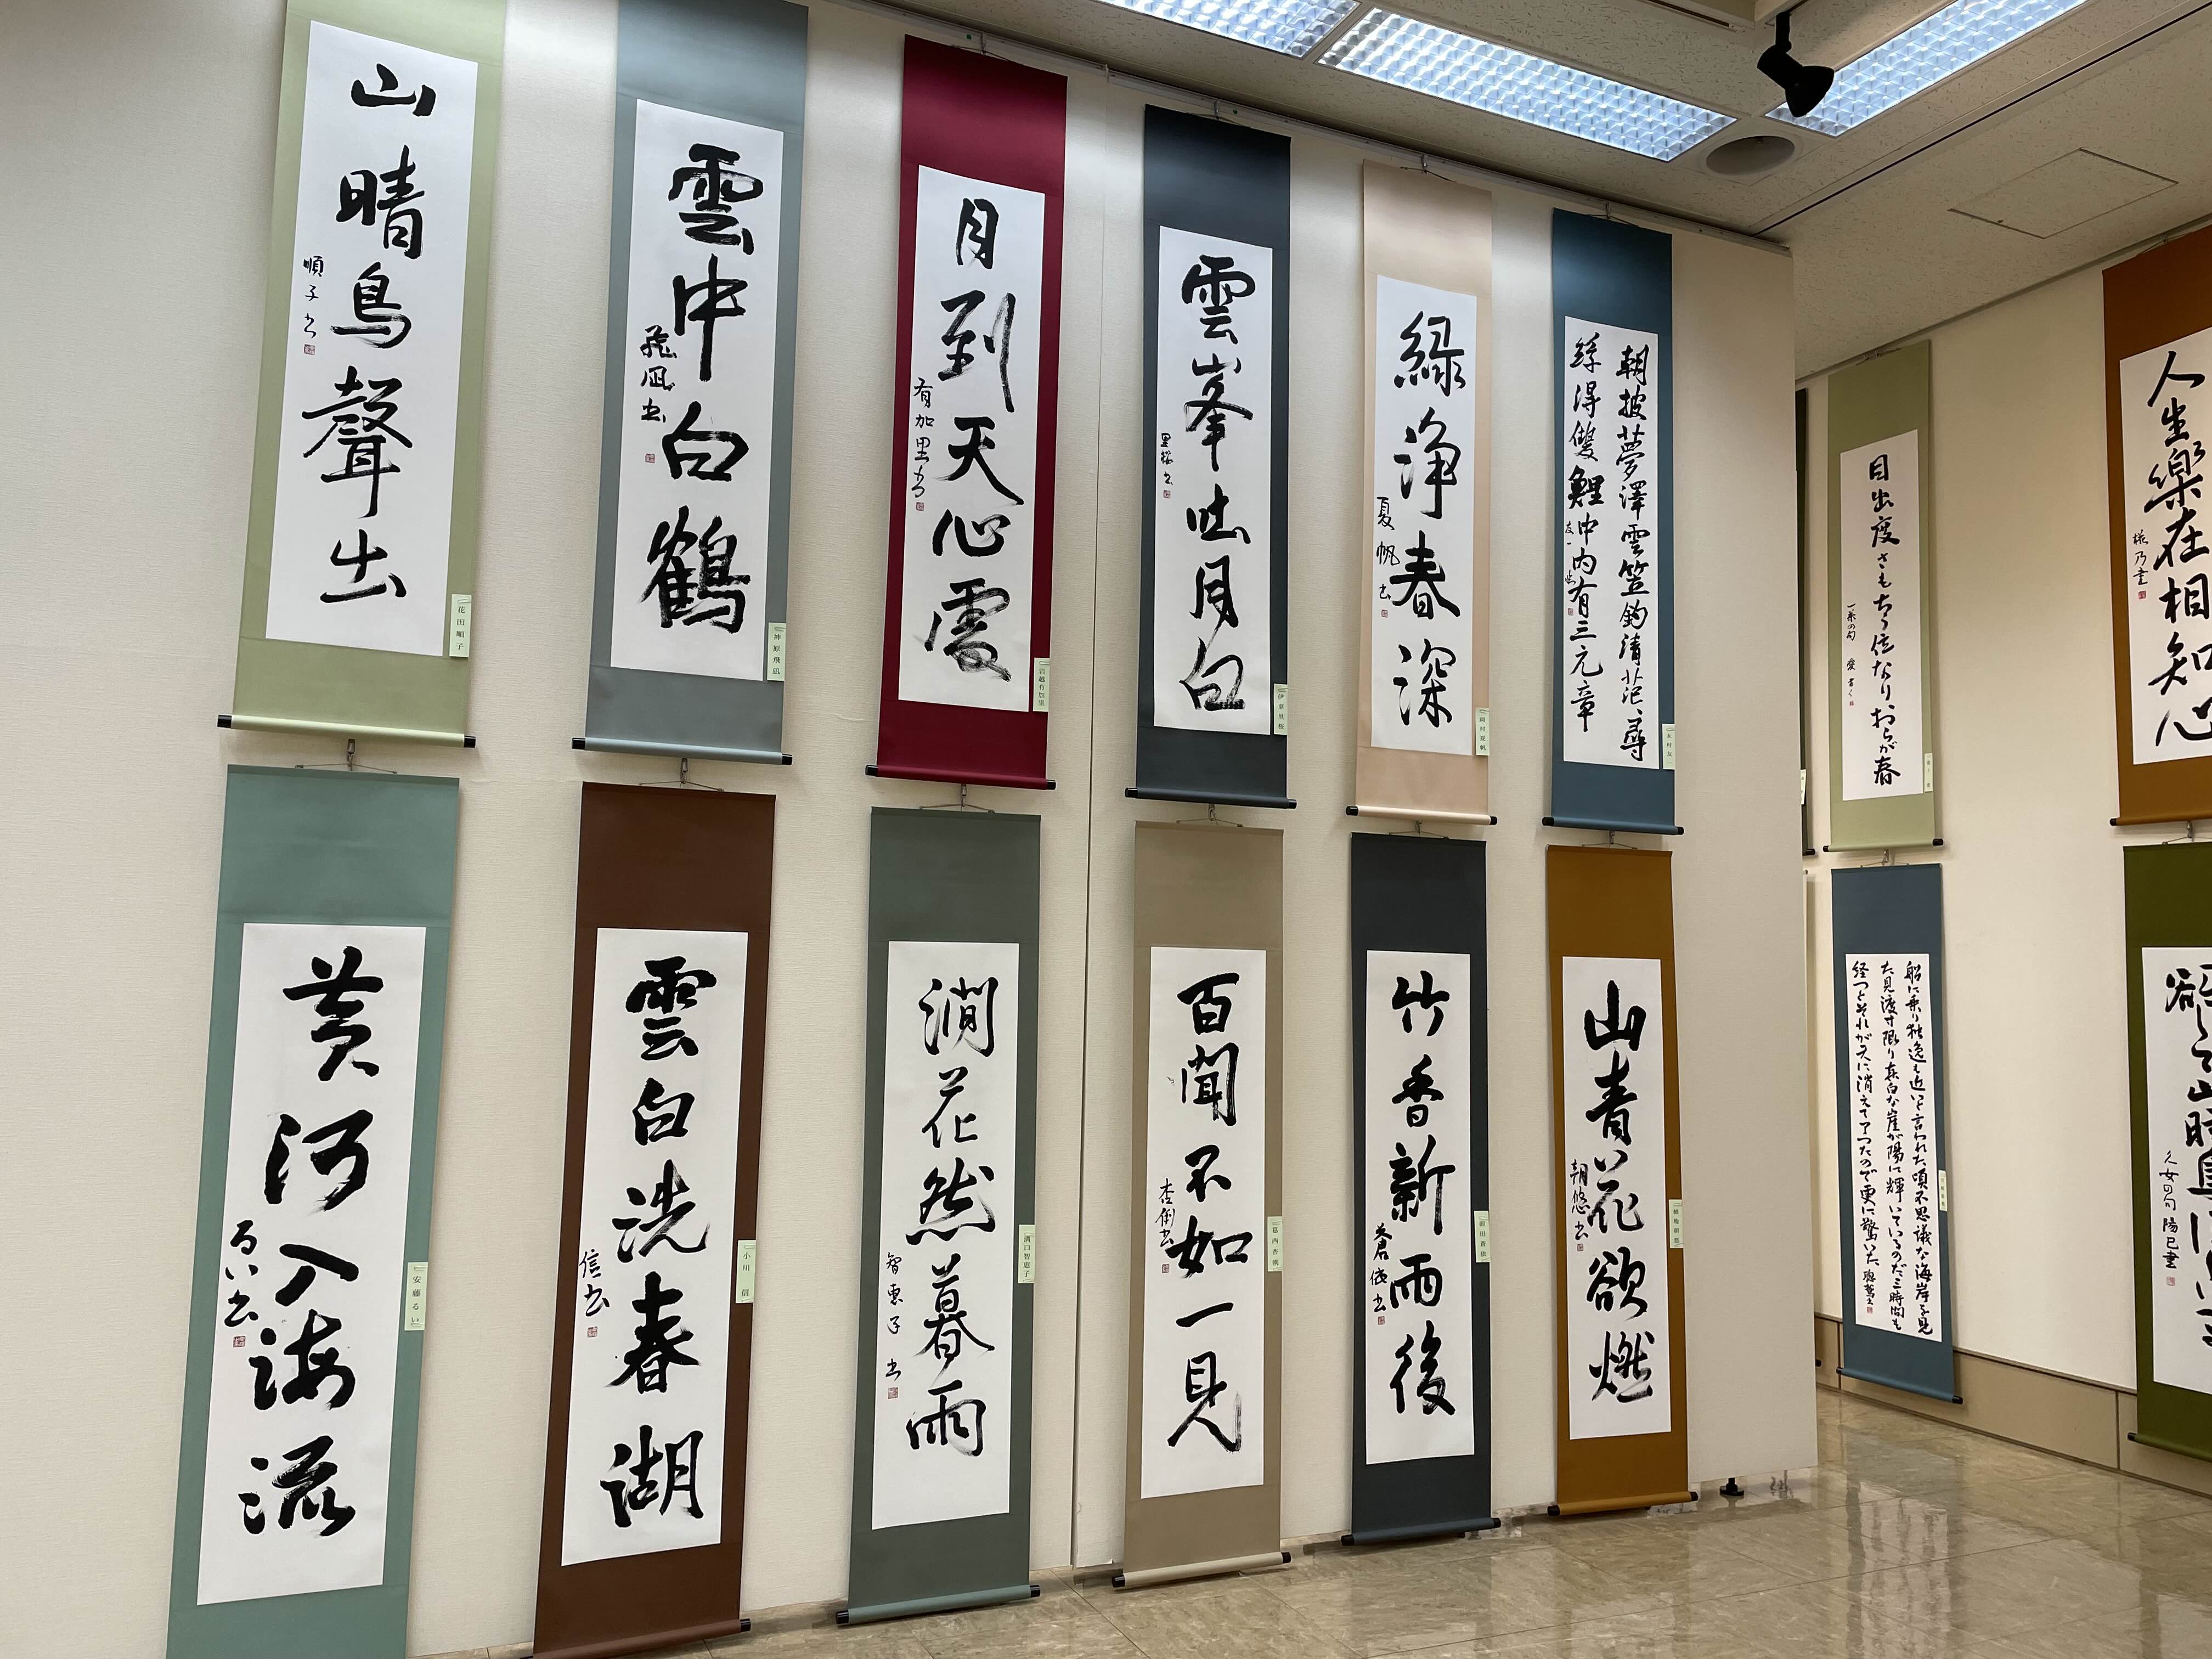 山晴鳥聲出
順子書
花田順子
雲中白鶴
飛凪書
神原飛凪
月到天心處
有加里書
岩越有加里
雲峯吐月白
里桜書
伊東里桜
緑浄春深
夏帆書
岡村夏帆
朝披夢澤雲笠釣清茫茫尋
絲得雙鯉中内有三元章
友一書
黄河入海流
るい書
安藤るい
雲白洗春湖
信書
小川信
澗花然暮雨
智恵子書
溝口智恵子
百聞不如一見
杏俐書
葛西杏俐
竹香新雨後
蒼依書
前田蒼依
山青花欲燃
朝悠書
目出度さもちう位なりおらが春
一茶の句
人生樂在相知心
船に乗り独逸も近いと言われた頃不思議な海岸を見
た見渡す限り真白な崖が陽に輝いているのだ三時間も
経つとそれが天に消えて了つたので更に驚いた
久女の句 陽已書